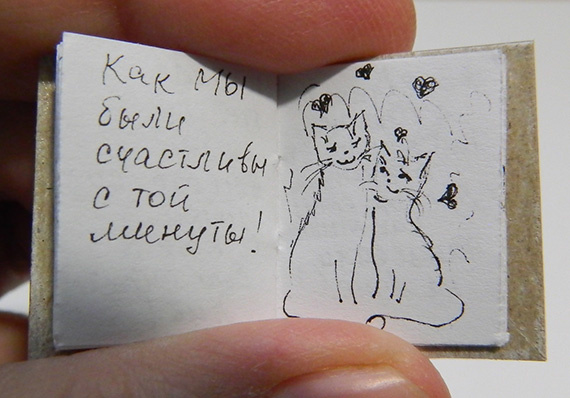 Как мы
были
счастливы
с той
минуты!